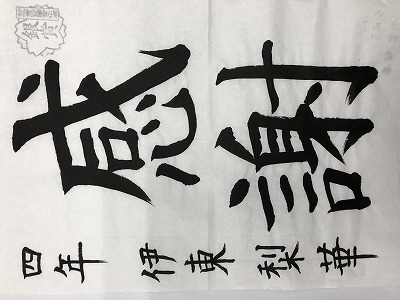 感謝
四年 伊東梨華